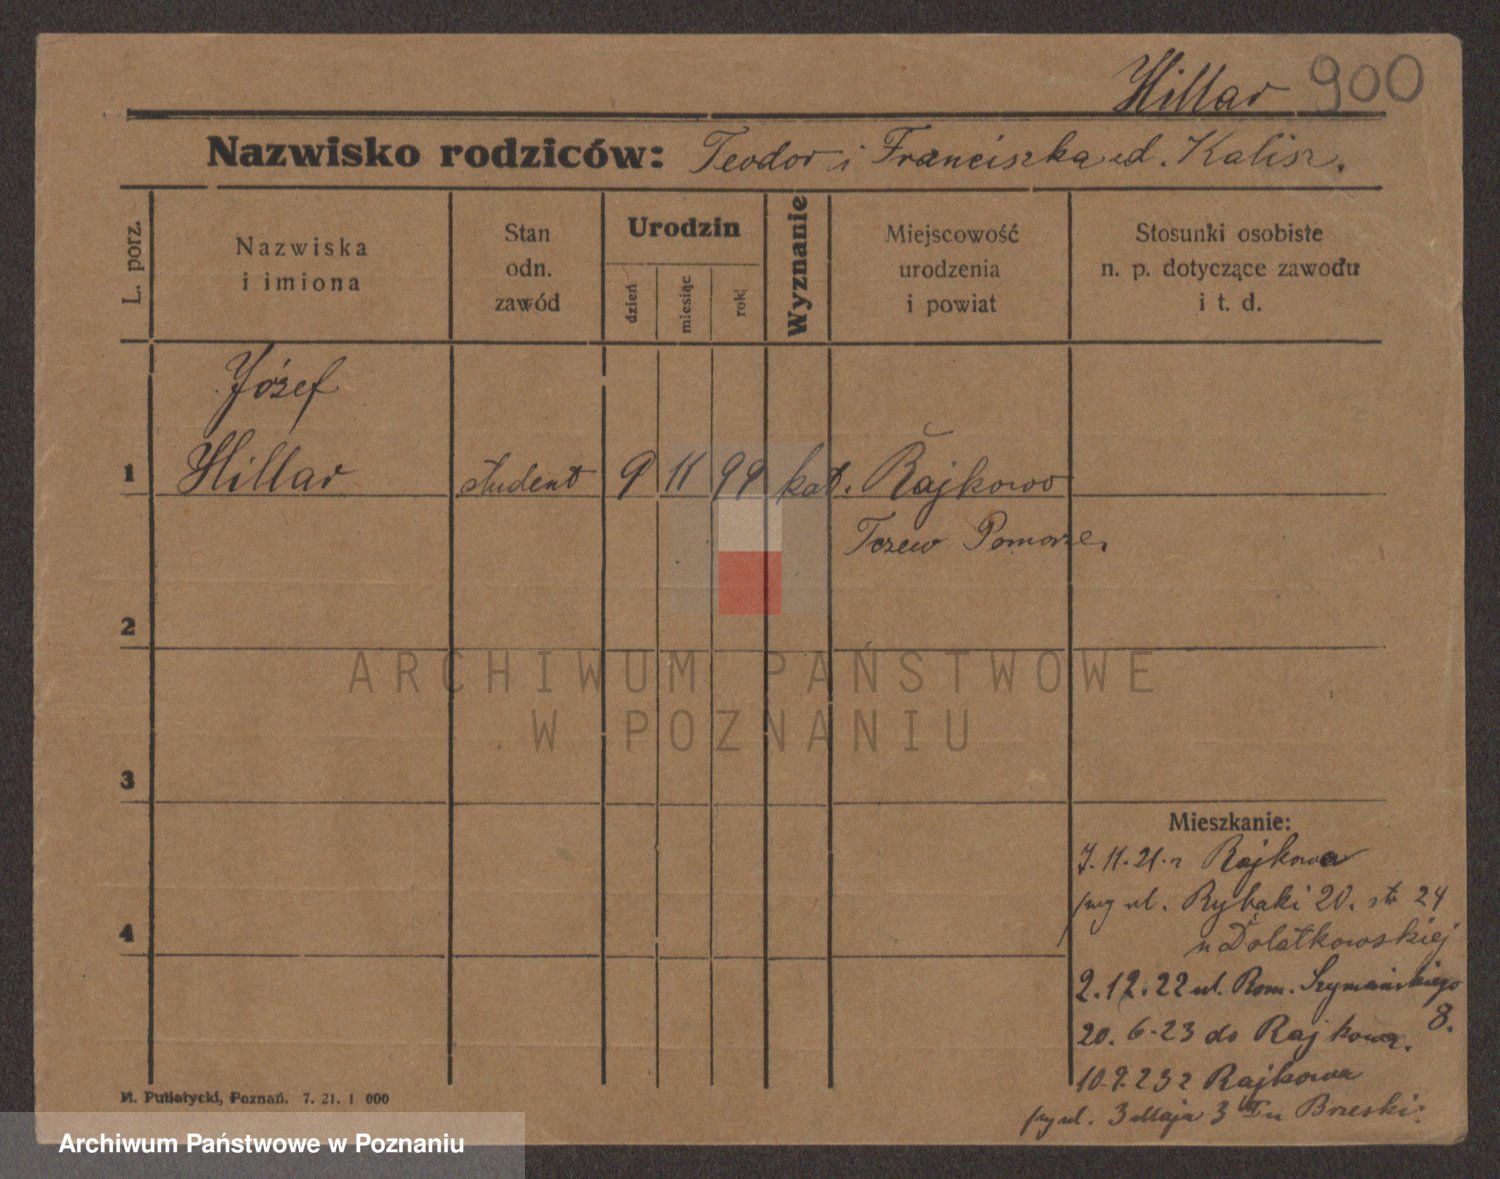 Hillar 900
Nazwisko rodziców: Teodor i Franciszka ed. Kalisz.
L. porz.
Nazwiska
i imiona
Stan
odn.
zawód
Urodzin
dzień
miesiąc
rok
Wyznanie
Miejscowość
urodzenia
i powiat
Stosunki osobiste
n. p. dotyczące zawodu
i t. d.
Józef
1 Hillar student 9 11 99 kat. Rajkowo
Tczew Pomorze.
2
ARCHIWUM PAŃSTWOWE
W POZNANIU
3
Mieszkanie:
7.11.21. z Rajkowa
ul. Rybaki 20. 24
4
u Dolatkowskiej
2.12.22 ul. Rom. Szymańskiego
8.
20. 6-23 do Rajkowa.
10.9.23 z Rajkowa
ul. 3 Maja 3 Brzeski
M. Putiatycki, Poznań. 7. 21. 1 000
Archiwum Państwowe w Poznaniu